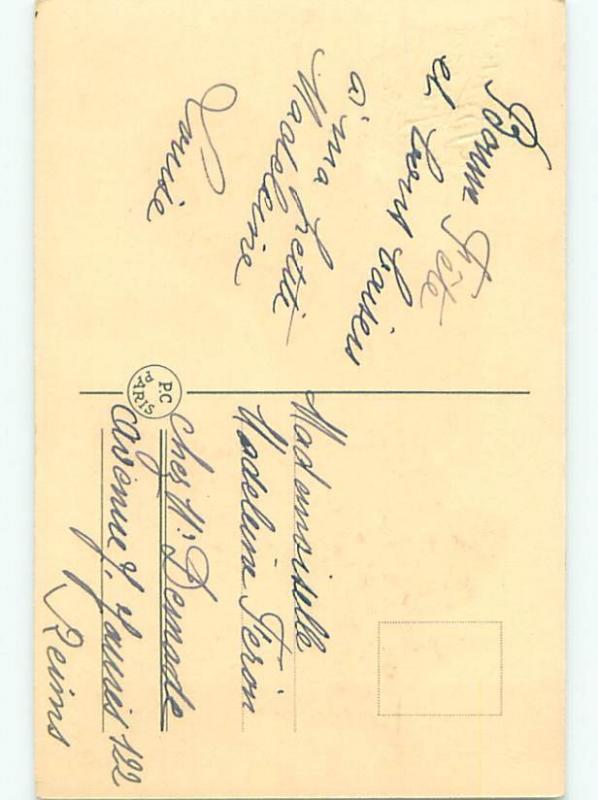 Bonne Fête
et Cent baisers
à ma Petite
Madeleine
Louise
P.C
PARIS
Mademoiselle
Madeleine Féron
Chez Mr Demade
avenue 122
Reims